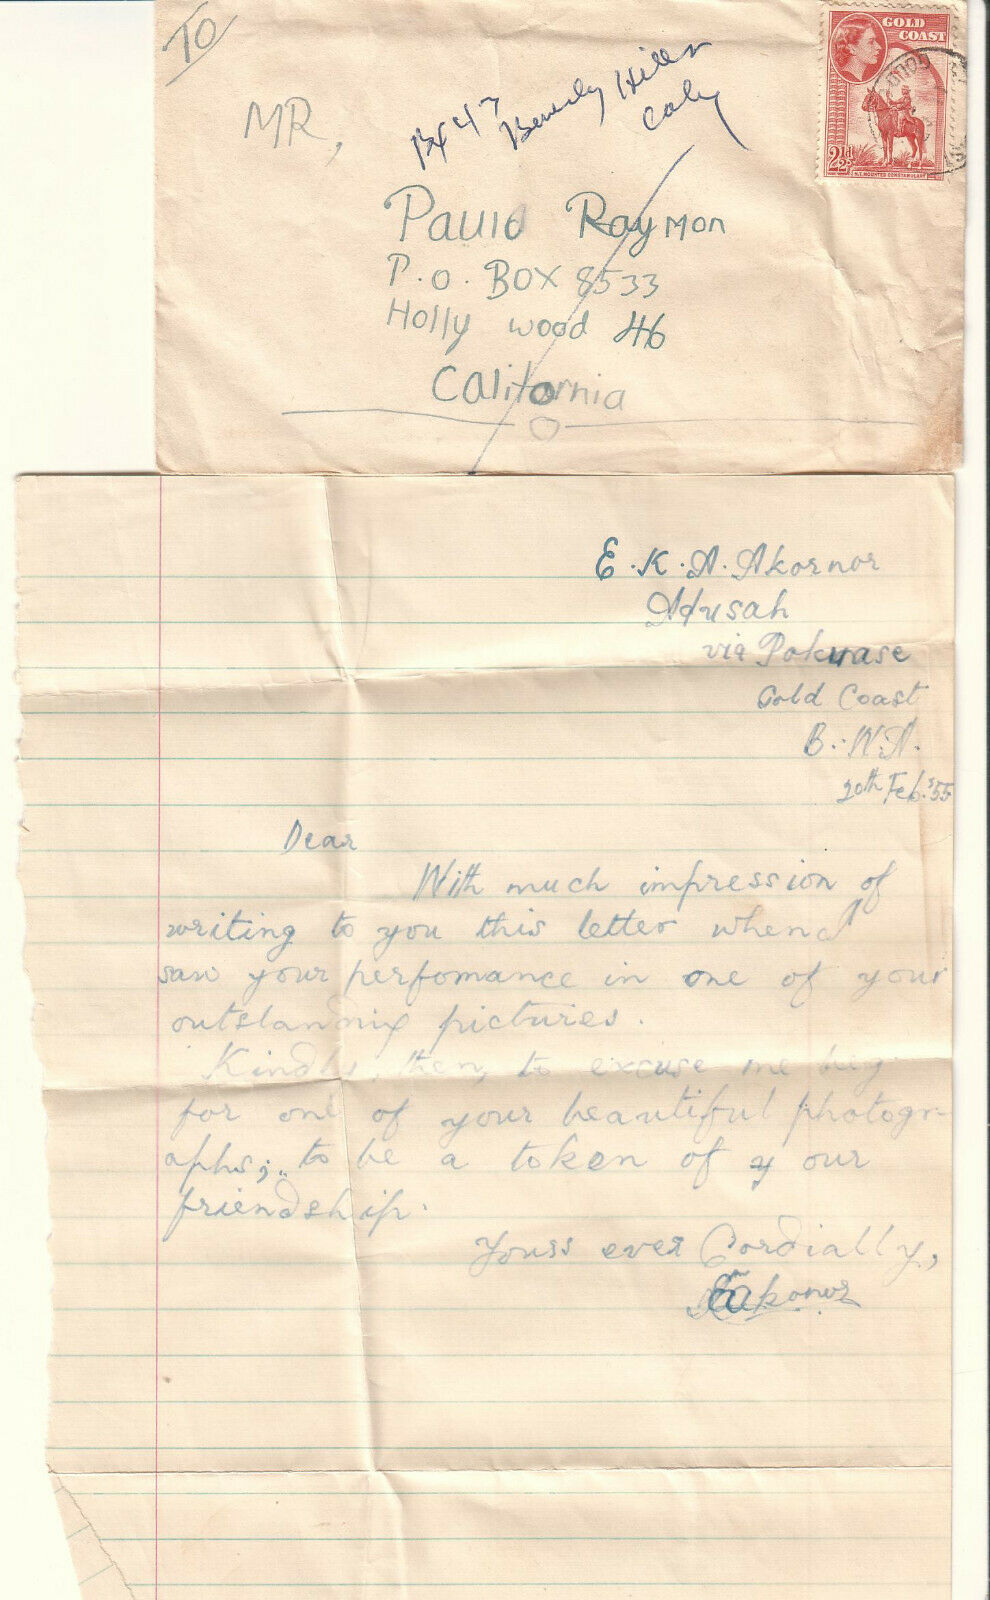 TO
MR,
Bx 47
Beverly Hills
Calif
GOLD
COAST
2½d
N.T. MOUNTED CONSTABULARY
Paulo Raymon
P.O. BOX 8533
Holly wood 46
California
E.K.A. Akornor
Adusah
via Pokuase
Gold Coast
B.W.A.
20th Feb. '55
Dear
With much impression of
writing to you this letter when I
saw your perfomance in one of your
outstanding pictures.
Kindly, then, to excuse me beg
for one of your beautiful photogr-
aphs; to be a token of your
friendship.
Yours ever Cordially,
Akornor